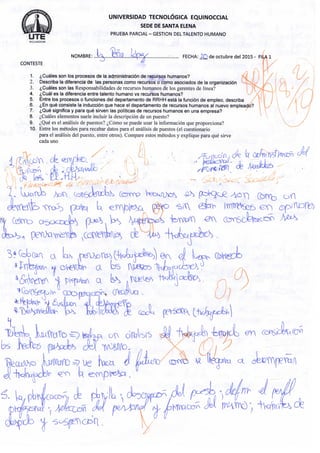 UNIVERSIDAD TECNOLÓGICA EQUINOCCIAL
SEDE DE SANTA ELENA
PRUEBA PARCIAL – GESTION DEL TALENTO HUMANO
UTE
NOMBRE: Peña López FECHA: 20 de octubre del 2015 - FILA 1
CONTESTE
1. ¿Cuáles son los procesos de la administración de recursos humanos?
2. Describa la diferencia de las personas como recursos o como asociados de la organización
3. ¿Cuáles son las Responsabilidades de recursos humanos de los gerentes de línea?
4. ¿Cuál es la diferencia entre talento humano vs recursos humanos?
5. Entre los procesos o funciones del departamento de RRHH está la función de empleo, describa
6. ¿En qué consiste la inducción que hace el departamento de recursos humanos al nuevo empleado?
7. ¿Qué significa y para qué sirven las políticas de recursos humanos en una empresa?
8. ¿Cuáles elementos suele incluir la descripción de un puesto?
9. ¿Qué es el análisis de puestos? ¿Cómo se puede usar la información que proporciona?
10. Entre los métodos para recabar datos para el análisis de puestos (el cuestionario
para el análisis del puesto, entre otros). Compare estos métodos y explique para qué sirve
cada uno
de empleo. Función de la administración del
personal
Función de desarrollo Función de
2. cuando son considerados como recursos es porque son como un
elemento más para la empresa, pero sin opiniones
y como asociados pues, los superiores toman en consideración sus
ideas, pensamientos comentarios de los trabajadores.
3. * Colocar a las personas (trabajadores) en el lugar correcto
* Integrar y orientar a los nuevos trabajadores
* Entrenar y preparar a los nuevos trabajadores
* Conseguir cooperación creativa.
* evaluar el desempeño
* Desarrollar las habilidades de cada persona (trabajador) 0,9
4.
Talento humano => realiza un análisis del trabajo tomando en consideración
los hechos pasados del mismo.
Recurso humano => ve hacia el futuro como se llegara a desempeñar
el trabajador en la empresa.
5. La planificación de plantilla; descripción del puesto; definir el perfil
profesional; selección del personal y formación del mismo; tramites de
despido y suspención.